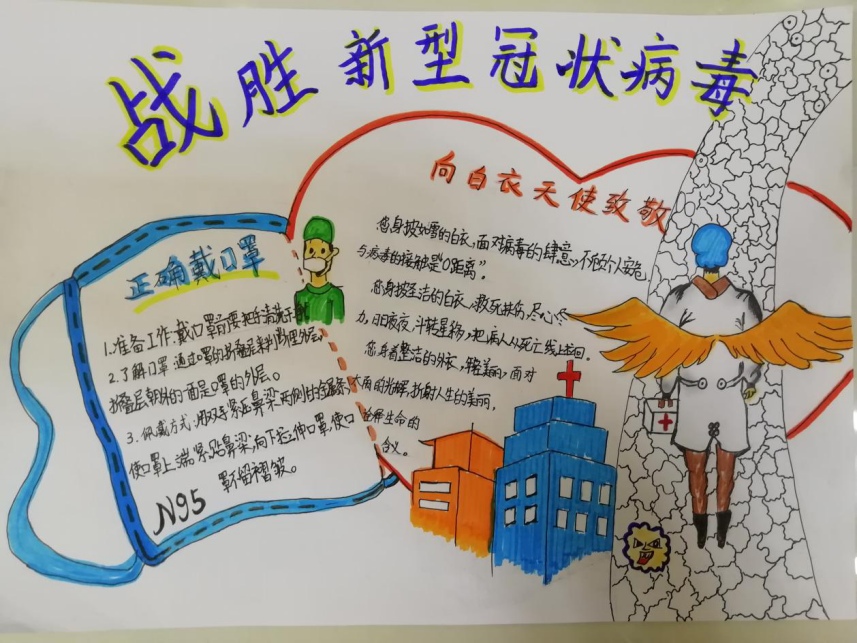 战胜新型冠状病毒
向白衣天使致敬
您身披如雪的白衣,面对病毒的肆意,不顾个人安危
与病毒的接触是“0距离”。
您身披圣洁的白衣,救死扶伤,尽心尽
力,日日夜夜,斗转星移,把病人从死亡线上拉回。
您身着整洁的外衣,美丽,面对
折射人生的美丽,
诠释生命的
含义。
正确戴口罩
1.准备工作:戴口罩前要把手清洗干净
2.了解口罩:通过罩的折叠层来判断里外层。
折叠层朝外的面是口罩的外层。
3.佩戴方式:用双手紧压鼻梁两侧的金属条,
使口罩上端紧贴鼻梁,向下拉伸口罩,使口
罩不留褶皱。
N95